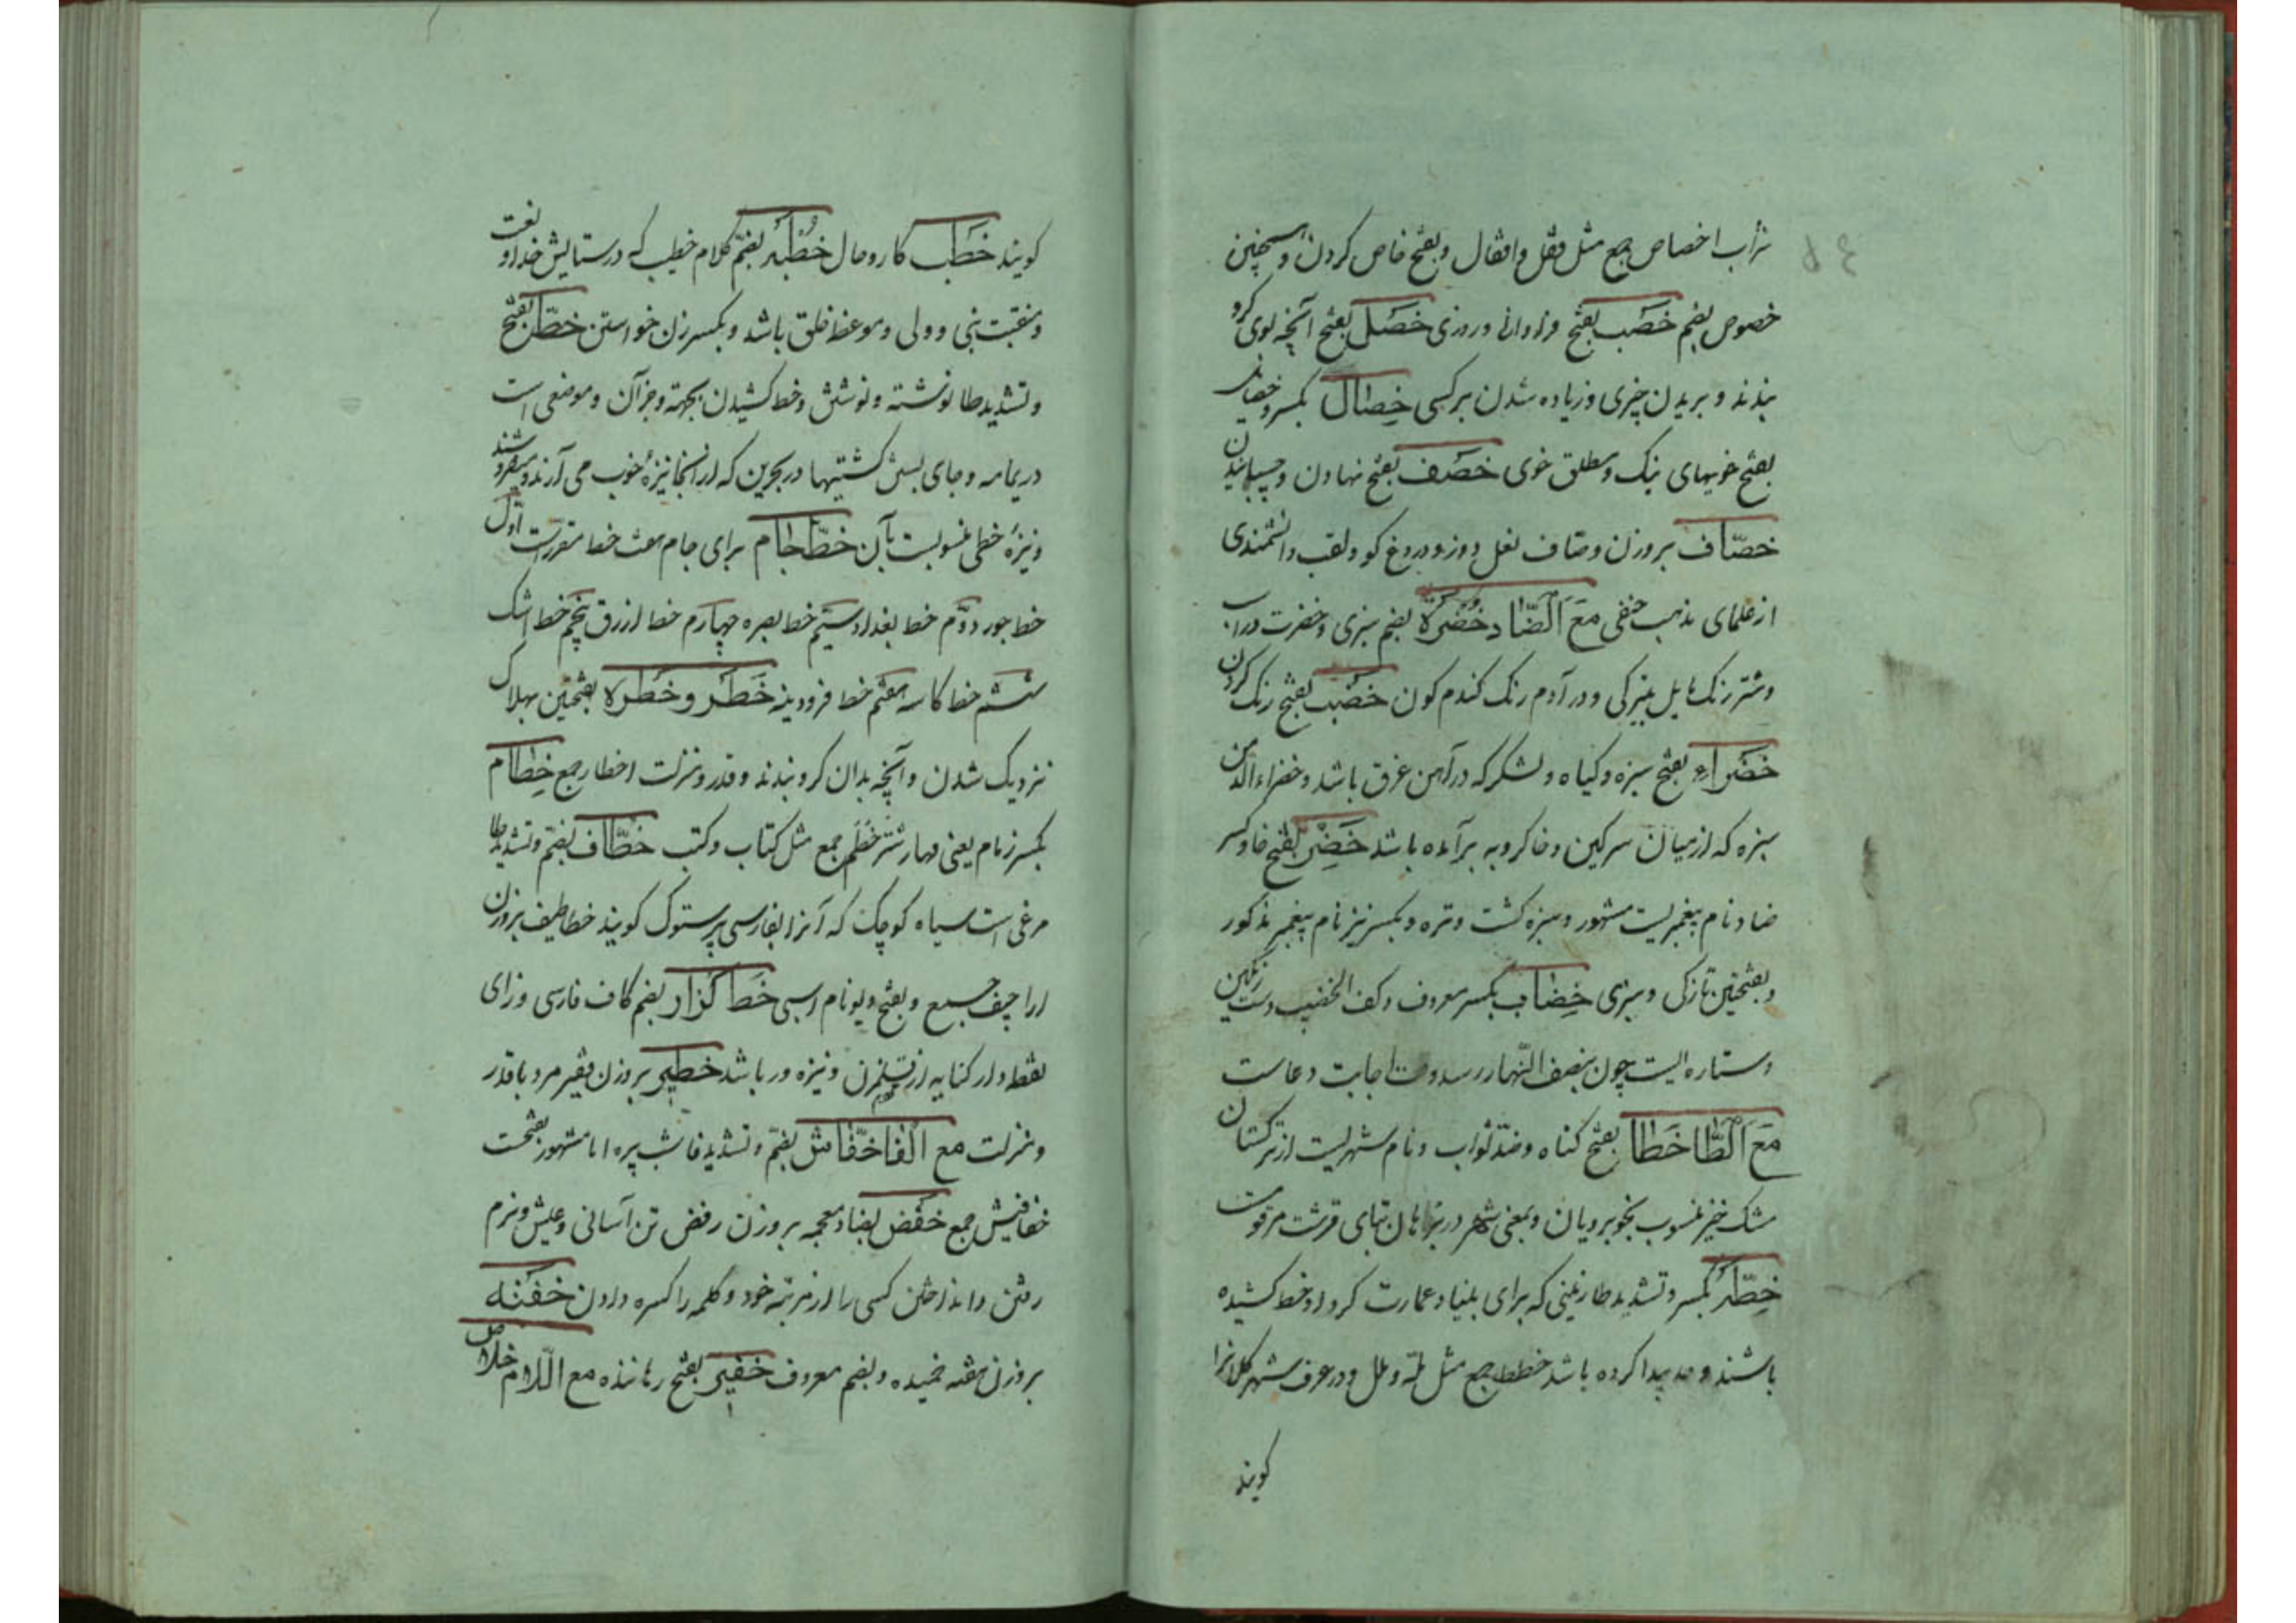 تراب اخصاص جمع مثل قفل و اقفال و بفتح خاص کردن و همچنین
خصوص بضم خصب بفتح فراوانی و روزی خصل بفتح آنچه لوی کرو
بندند و بریدن چیزی و زیاده شدن بر کسی خصال بکسر و خصایل
بفتح خویهای نیک و مطلق خوی خصف بفتح نهادن و چسپانیدن
خصّاف بر وزن وصاف نعل دوز و دروغ کو و لقب دانشمندی
از علمای مذهب حنفی مع الضاد خضرة بضم سبزی و خضرت در اسب
و شتر رنک مایل بتیرکی و در آدم رنک کندم کون خضب بفتح رنک کردن
خضراء بفتح سبزه و کیاه و لشکر که در آهن غرق باشد و خضراء الدمن
سبزه که از میان سرکین و خاکروبه برآمده باشد خضر بفتح خا و کسر
ضاد نام پیغمبریست مشهور و سبزه کشت و تره و بکسر نیز نام پیغمبر مذکور
و بفتحتین تازکی و سبزی خضاب بکسر معروف و کف الخضیب دست رنکین
و ستاره ایست چون بنصف النّهار رسد وقت اجابت دعاست
مع الطّا خطا بفتح کناه و ضدّ ثواب و نام شهریست از ترکستان
مشک خیز منسوب بخوبرویان و بمعنی شهر در بتای قرشت مرقومست
خطّه بکسر و تشدید طا زمینی که برای بنیاد عمارت کرد او خط کشیده
باشند و حد پیدا کرده باشد خطط جمع مثل ملّه و ملل و در عرف شهر کلانرا
کویند
کویند خطب کار و حال خطبه بضمّ کلام خطیب که در ستایش خدا و نعت
و منقبت نبی و ولی و موعظ خلق باشد و بکسر زن خواستن خطّ بفتح
و تشدید طا نوشته و نوشتن و خط کشیدن بجهة و جز آن و موضعی است
در یمامه و جای بستن کشتیها در بحرین که از انجا نیزهٔ خوب می آرند و میفروشند
و نیزهٔ خطی منسوبست بآن خطّ جام برای جام هفت خط مقررست اوّل
خط جور دوّم خط بغداد سیّم خط بصره چهارم خط ازرق پنجم خط اشک
ششم خط کاسه هفتم خط فرودینه خطر و خطره بفتحتین بهلاک
نزدیک شدن و آنچه بدان کرو بندند و قدر و منزلت اخطار جمع خطام
بکسر زمام یعنی مهار شتر خطم جمع مثل کتاب و کتب خطّاف بضمّ و تشدید طا
مرغی است سیاه کوچک که آنرا بفارسی پرستوک کویند خطاطیف بر وزن
اراجیف جمع و بفتح دیو نام اسبی خط کزار بضم کاف فارسی و زای
نقطه دار کنایه از قلمزن و نیزه ور باشد خطیر بر وزن فقیر مرد با قدر
و منزلت مع الفا خفّاش بضمّ و تشدید فا شب پره اما مشهور بفتحست
خفافیش جمع خفض بضاد معجمه بر وزن رفض تن آسانی و عیش و نرم
رفتن و انداختن کسی را از مرتبه خود و کلمه را کسره دادن خفته
بر وزن هفته خمیده و بضم معروف خفیر بفتح رهاننده مع اللّام خلاص